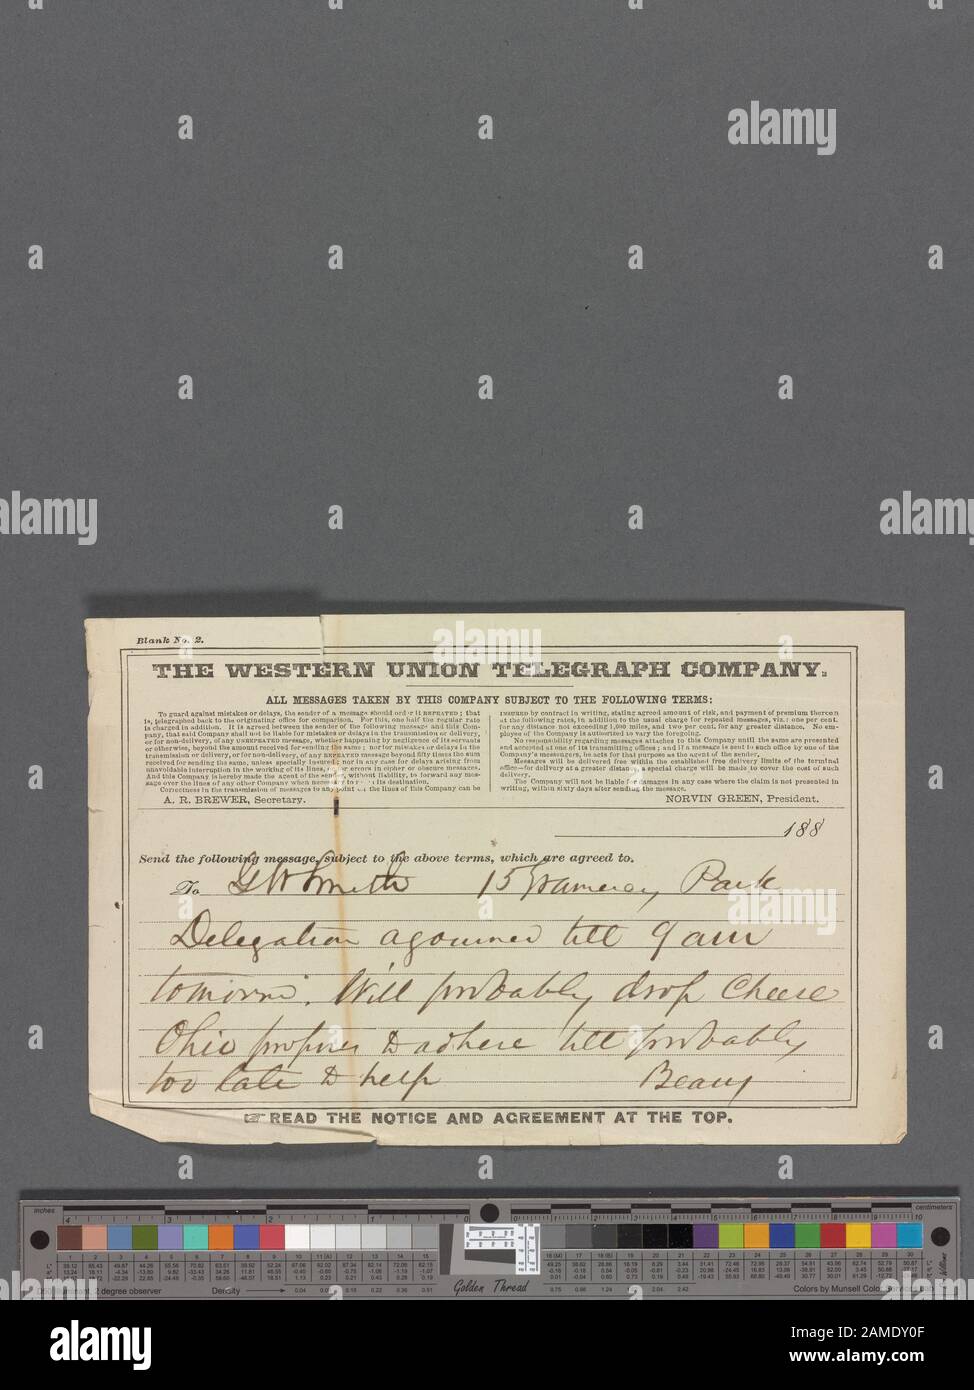 Blank No. 2.
THE WESTERN UNION TELEGRAPH COMPANY.
ALL MESSAGES TAKEN BY THIS COMPANY SUBJECT TO THE FOLLOWING TERMS:
To guard against mistakes or delays, the sender of a message should order it REPEATED; that
is, telegraphed back to the originating office for comparison. For this, one half the regular rate
is charged in addition. It is agreed between the sender of the following message and this Com-
pany, that said Company shall not be liable for mistakes or delays in the transmission or delivery,
or for non-delivery, of any UNREPEATED message, whether happening by negligence of its servants
or otherwise, beyond the amount received for sending the same; nor for mistakes or delays in the
transmission or delivery, or for non-delivery, of any REPEATED message beyond fifty times the sum
received for sending the same, unless specially insured, nor in any case for delays arising from
unavoidable interruption in the working of its lines, or for errors in cipher or obscure messages.
And this Company is hereby made the agent of the sender, without liability, to forward any mes-
sage over the lines of any other Company when necessary to reach its destination.
Correctness in the transmission of messages to any point on the lines of this Company can be
INSURED by contract in writing, stating agreed amount of risk, and payment of premium thereon
at the following rates, in addition to the usual charge for repeated messages, viz.: one per cent.
for any distance not exceeding 1,000 miles, and two per cent. for any greater distance. No em-
ployee of the Company is authorized to vary the foregoing.
No responsibility regarding messages attaches to this Company until the same are presented
and accepted at one of its transmitting offices; and if a message is sent to such office by one of the
Company's messengers, he acts for that purpose as the agent of the sender.
Messages will be delivered free within the established free delivery limits of the terminal
office—for delivery at a greater distance, a special charge will be made to cover the cost of such
delivery.
The Company will not be liable for damages in any case where the claim is not presented in
writing, within sixty days after sending the message.
A. R. BREWER, Secretary.
NORVIN GREEN, President.
188
Send the following message, subject to the above terms, which are agreed to.
To G W Smith 15 Gramercy Park
Delegation till 9 am
Will probably drop
Ohio proposes to adhere till probably
too late to help
READ THE NOTICE AND AGREEMENT AT THE TOP.
inches
centimeters
D50 Illuminant, 2 degree observer
Density
Golden Thread
Colors by Munsell Color Services Lab
alamy
Image ID: 2AMDY0F
www.alamy.com